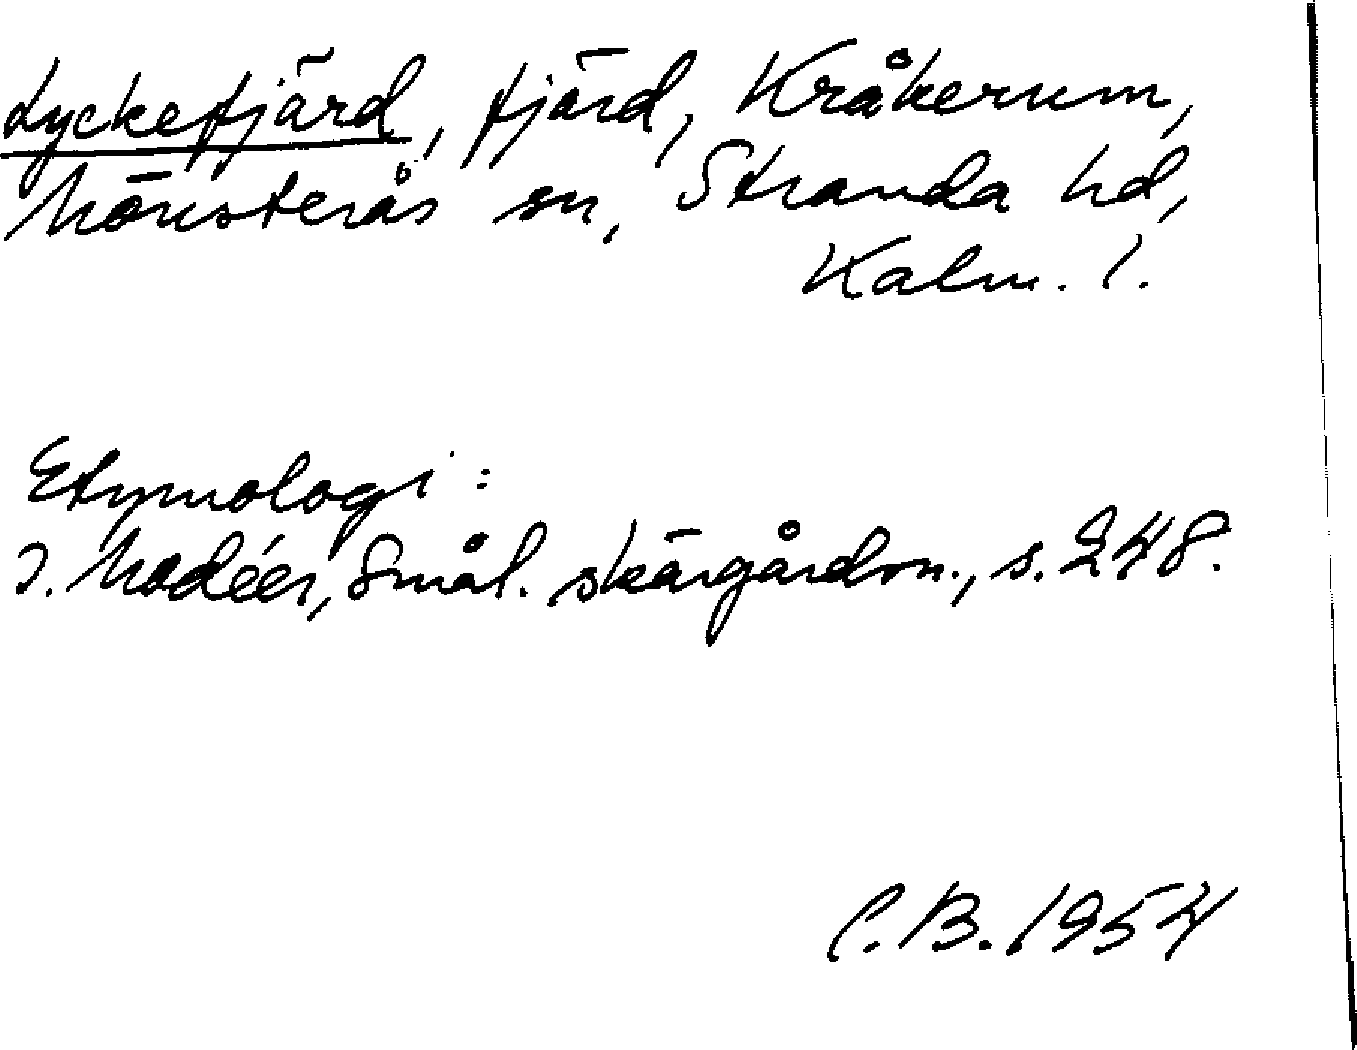 Lyckefjärd, fjärd, Kråkerum,
Mönsterås sn, Stranda hd,
Kalm. l.
Etymologi:
I. Modéer, Smål. skärgårdsn., s. 248.
C.B. 1954